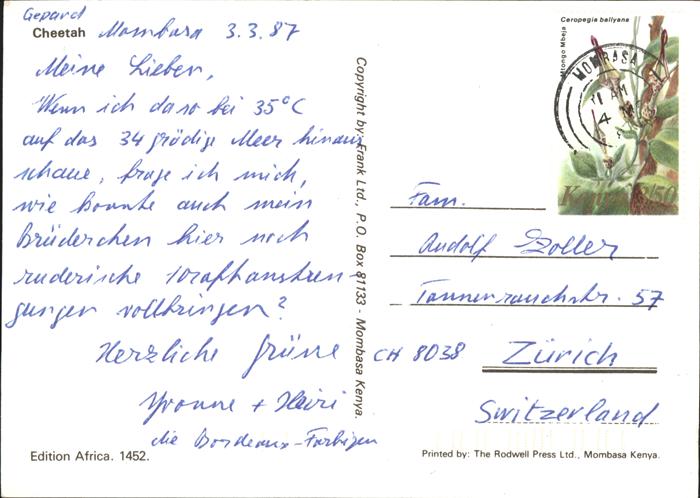 Gepard
Cheetah Mombasa 3.3.87
Meine Lieben,
Wenn ich da so bei 35°C
auf das 34 grädige Meer hinaus
schaue, frage ich mich,
wie konnte auch mein
Brüderchen hier noch
ruderische Kraftanstren-
gungen vollbringen?
Herzliche Grüsse
Yvonne + Heiri
die Bordeaux-Farbigen
Edition Africa. 1452.
Copyright by: Frank Ltd., P.O. Box 81133 - Mombasa Kenya.
Ceropegia ballyana
Mtongo Mbeja
MOMBASA
AM
4
Kenya 3/50
Fam.
Rudolf Zoller
Tannenrauchstr. 57
CH 8038 Zürich
Switzerland
Printed by: The Rodwell Press Ltd., Mombasa Kenya.